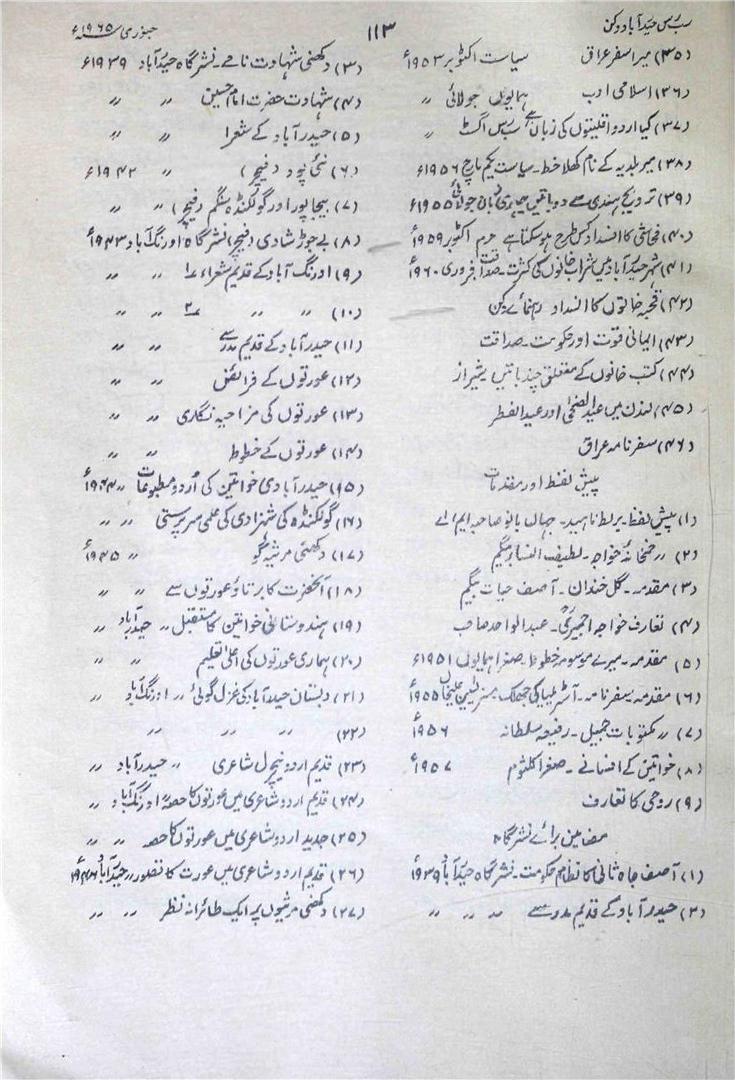 سب رس حیدرآباد دکن
۱۱۳
جنوری سنہ ۱۹۶۵ء
(۳۵) میرا سفر عراق سیاست اکٹوبر ۱۹۵۳ء
(۳۶) اسلامی ادب ہمایوں جولائی 〃
(۳۷) کیا اردو اقلیتوں کی زبان ہے سب رس اگسٹ 〃
(۳۸) میر بلدیہ کے نام کھلا خط۔ سیاست یکم مارچ ۱۹۵۶ء
(۳۹) ترویج ہندی سے دو باتیں ہماری زبان جولائی ۱۹۵۵ء
(۴۰) فحاشی کا انسداد کس طرح ہوسکتا ہے حرم اکٹوبر ۱۹۵۹ء
(۴۱) شہر حیدرآباد میں شراب خانوں کی کثرت۔ صداقت فروری ۱۹۶۰ء
(۴۲) قحبہ خانوں کا انسداد رہنمائے دکن
(۴۳) ایمانی قوت اور حکومت۔ صداقت
(۴۴) کتب خانوں کے متعلق چند باتیں۔ شیراز
(۴۵) لندن میں عید الضحیٰ اور عید الفطر
(۴۶) سفرنامہ عراق
پیش لفظ اور مقدمات
(۱) پیش لفظ۔ بربط ناہید۔ جہاں بانو صاحبہ ایم اے
(۲) 〃 خمخانۂ خواجہ۔ لطیف النسا بیگم
(۳) مقدمہ۔ گل خندان۔ آصف حیات بیگم
(۴) تعارف خواجہ اجمیری۔ عبدالواحد صاحب
(۵) مقدمہ۔ میرے موسومہ خطوط۔ صغرا ہمایوں ۱۹۵۱ء
(۶) مقدمہ سفرنامہ۔ آسٹریلیا کی جھلک۔ ۱۹۵۵ء
(۷) 〃 مکتوبات جمیل۔ رفیعہ سلطانہ ۱۹۵۶ء
(۸) خواتین کے افسانے۔ صغرا کلثوم ۱۹۵۷ء
(۹) روحی کا تعارف
مضامین برائے نشرگاہ
(۱) آصف جاہ ثانی کا نظام حکومت۔ نشرگاہ حیدرآباد ۱۹۳۹ء
(۲) حیدرآباد کے قدیم مدرسے 〃 〃 〃
(۳) دکھنی شہادت نامے۔ نشرگاہ حیدرآباد ۱۹۳۹ء
(۴) شہادت حضرت امام حسین 〃 〃
(۵) حیدرآباد کے شعرا 〃 〃
(۶) نئی پود (فیچر) 〃 ۱۹۴۲ء
(۷) بیجاپور اور گولکنڈہ سنگم (فیچر) 〃 〃
(۸) بے جوڑ شادی (فیچر) نشرگاہ اورنگ آباد ۱۹۴۳ء
(۹) اورنگ آباد کے قدیم شعراء ۱ 〃 〃
(۱۰) 〃 〃 〃 ۲ 〃 〃
(۱۱) حیدرآباد کے قدیم مدرسے 〃 〃
(۱۲) عورتوں کے فرائض 〃 〃
(۱۳) عورتوں کی مزاحیہ نگاری 〃 〃
(۱۴) عورتوں کے خطوط 〃 〃
(۱۵) حیدرآبادی خواتین کی اُردو مطبوعات 〃 ۱۹۴۴ء
(۱۶) گولکنڈہ کی شہزادی کی علمی سرپرستی 〃 〃
(۱۷) دکھنی مرثیہ گو 〃 ۱۹۴۵ء
(۱۸) آنحضرت کا برتاؤ عورتوں سے 〃 〃
(۱۹) ہندوستانی خواتین کا مستقبل 〃 حیدرآباد 〃
(۲۰) ہماری عورتوں کی اعلیٰ تعلیم 〃 〃
(۲۱) دبستان حیدرآباد کی غزل گوئی 〃 اورنگ آباد 〃
(۲۲) 〃 〃 〃 〃
(۲۳) قدیم اردو نیچرل شاعری 〃 حیدرآباد 〃
(۲۴) قدیم اردو شاعری میں عورتوں کا حصہ 〃 اورنگ آباد 〃
(۲۵) جدید اردو شاعری میں عورتوں کا حصہ 〃 〃
(۲۶) قدیم اردو شاعری میں عورت کا تصور 〃 حیدرآباد ۱۹۴۶ء
(۲۷) دکھنی مرثیوں پر ایک طائرانہ نظر 〃 〃